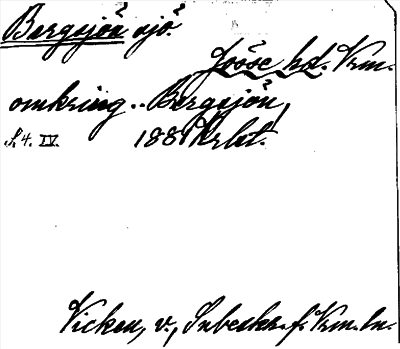 Bergsjön sjö.
Jösse hd. Vrm.
omkring .. Bergsjön,
S. 4. IV. 1884
Vicken, v., f. Vrm. ln.